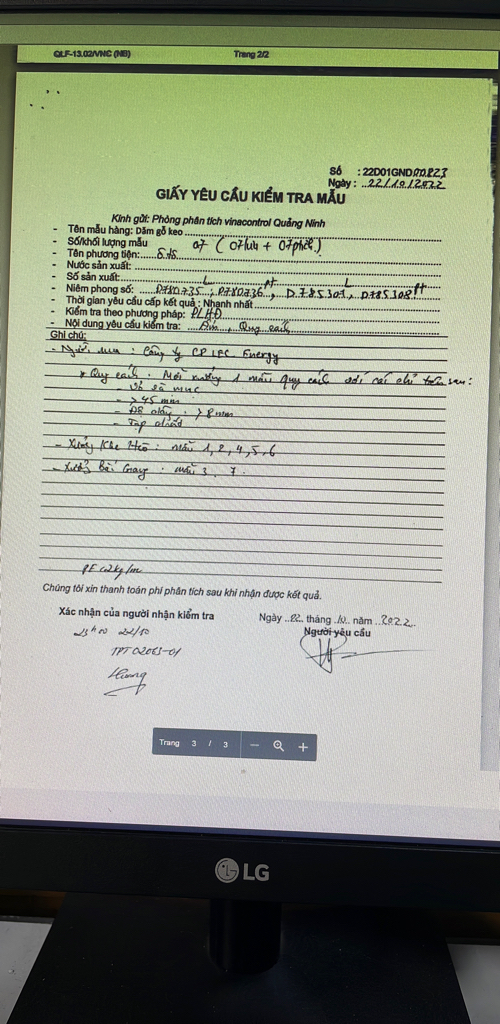 QLF-13.02/VNC (NB) Trang 2/2
Số : 22D01GND00823
Ngày : 22/10/2022
GIẤY YÊU CẦU KIỂM TRA MẪU
Kính gửi: Phòng phân tích vinacontrol Quảng Ninh
- Tên mẫu hàng: Dăm gỗ keo
- Số/khối lượng mẫu 07 (07 lưu + 07 phối)
- Tên phương tiện:
- Nước sản xuất:
- Số sản xuất:
- Niêm phong số: D780735 L, D780736 H, D785307 L, D785308 H
- Thời gian yêu cầu cấp kết quả : Nhanh nhất
- Kiểm tra theo phương pháp: PLHĐ
- Nội dung yêu cầu kiểm tra: Ẩm, Quy cách
Ghi chú:
- Người mua : Công ty CP LFC Energy
* Quy cách : Mỗi xưởng 1 mẫu quy cách với các chỉ tiêu sau:
- Vỏ và mục
- > 45 mm
- Độ dày : > 8mm
- Tạp chất
- Xưởng Khe Hèo : mẫu 1, 2, 4, 5, 6
- Xưởng Bắc Giang : mẫu 3, 7.
Chúng tôi xin thanh toán phí phân tích sau khi nhận được kết quả.
Xác nhận của người nhận kiểm tra Ngày 22 tháng 10 năm 2022
23h00 22/10 Người yêu cầu
TPT 02063-01
Hương
Trang 3 / 3 — +
LG